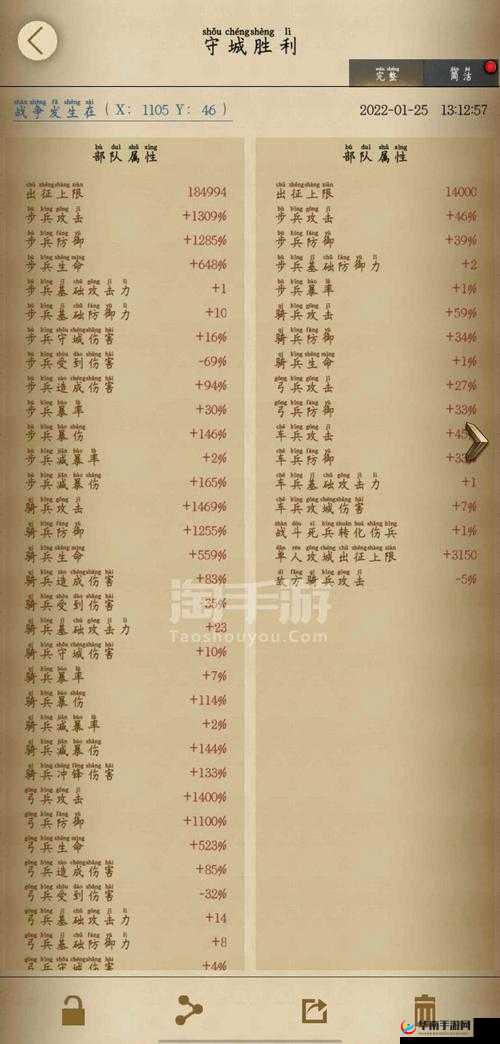 守城胜利
完整
简洁
战争发生在 ( X: 1105 Y: 46 )
2022-01-25 13:12:57
部队属性
出征上限 184994
步兵攻击 +1309%
步兵防御 +1285%
步兵生命 +648%
步兵基础攻击力 +1
步兵基础防御力 +10
步兵守城伤害 +16%
步兵受到伤害 -69%
步兵造成伤害 +94%
步兵暴率 +30%
步兵暴伤 +146%
步兵减暴率 +2%
步兵减暴伤 +165%
骑兵攻击 +1469%
骑兵防御 +1255%
骑兵生命 +559%
骑兵造成伤害 +83%
骑兵受到伤害 -35%
骑兵基础攻击力 +23
骑兵守城伤害 +10%
骑兵暴率 +7%
骑兵暴伤 +114%
骑兵减暴率 +2%
骑兵减暴伤 +144%
骑兵冲锋伤害 +133%
弓兵攻击 +1400%
弓兵防御 +1100%
弓兵生命 +523%
弓兵造成伤害 +85%
弓兵受到伤害 -32%
弓兵基础攻击力 +14
弓兵基础防御力 +8
弓兵守城伤害 +4%
部队属性
出征上限 14000
步兵攻击 +46%
步兵防御 +39%
步兵基础防御力 +2
步兵暴率 +1%
骑兵攻击 +59%
骑兵防御 +34%
骑兵生命 +1%
弓兵攻击 +27%
弓兵防御 +33%
车兵攻击
车兵防御
车兵基础攻击力 +1
车兵攻城伤害 +7%
战斗死兵转化伤兵 +1%
单人攻城出征上限 +3150
敌方骑兵攻击 -5%
淘手游
Taoshouyou.com
华南手游网